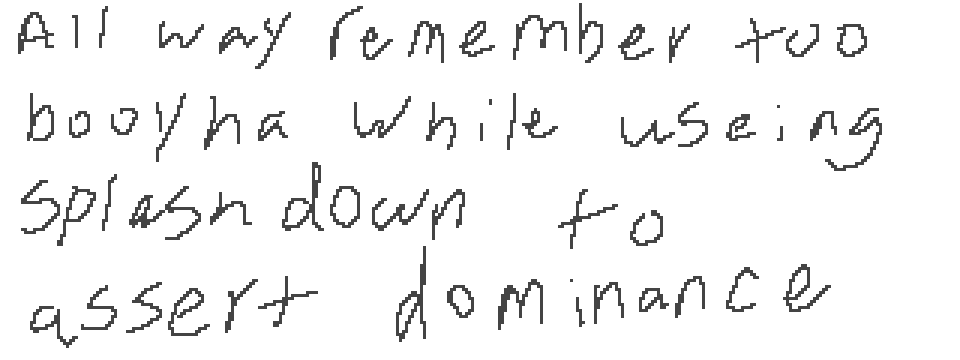 All way remember too
booyha while useing
splashdown to
assert dominance